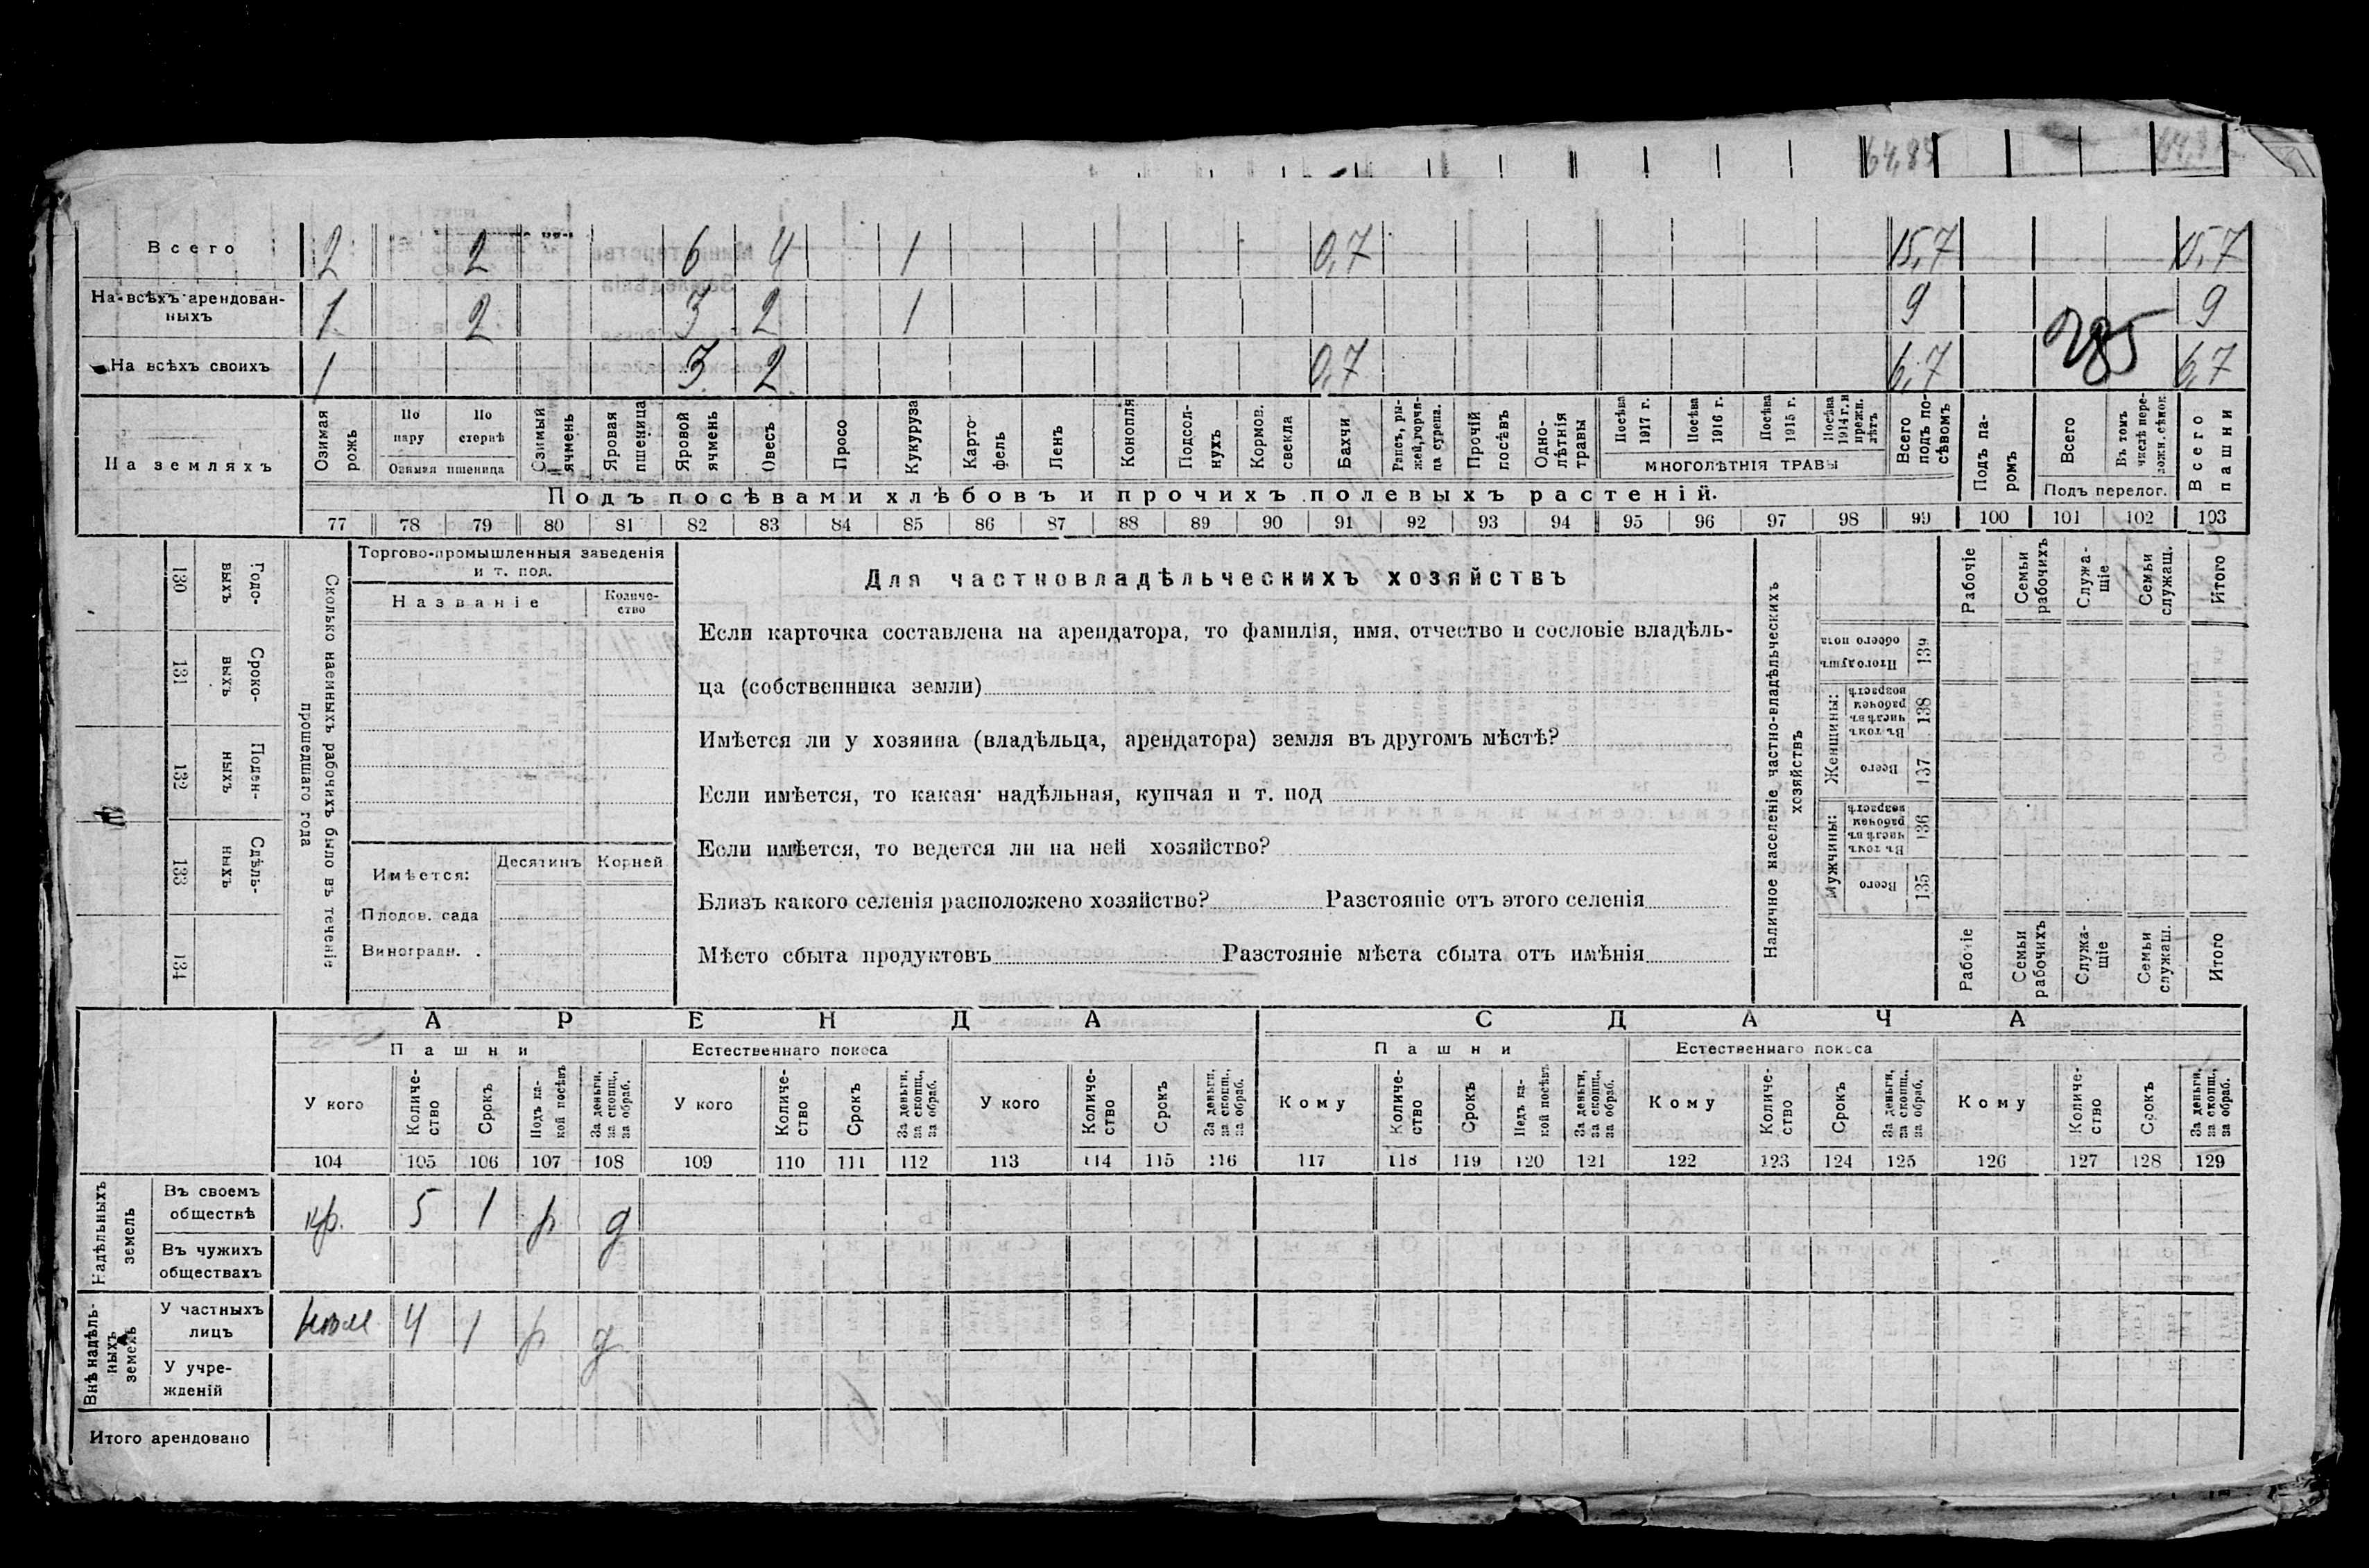 64,85
Всего 2 2 6 4 1 0,7 15,7 15,7
На всѣхъ арендованныхъ 1 2 3 2 1 9 9
285
На всѣхъ своихъ 1 3 2 0,7 6,7 6,7
На земляхъ
Озимая рожь
По пару
По стернѣ
Озимая пшеница
Озимый ячмень
Яровая пшеница
Яровой ячмень
Овесъ
Просо
Кукуруза
Картофель
Ленъ
Конопля
Подсолнухъ
Кормов. свекла
Бахчи
Рапсъ, рыжей, горчица сурепа.
Прочій посѣвъ
Однолѣтнія травы
Посѣва 1917 г.
Посѣва 1916 г.
Посѣва 1915 г.
Посѣва 1914 г. и прежн. лѣтъ
МНОГОЛѢТНІЯ ТРАВЫ
Всего подъ посѣвомъ
Подъ паромъ
Всего
Въ томъ числѣ переложн. сѣнок.
Подъ перелог.
Всего пашни
Подъ посѣвами хлѣбовъ и прочихъ полевыхъ растеній.
77 78 79 80 81 82 83 84 85 86 87 88 89 90 91 92 93 94 95 96 97 98 99 100 101 102 103
130 Годовыхъ
131 Сроковыхъ
132 Поденныхъ
133 Сдѣльныхъ
134
Сколько наемныхъ рабочихъ было въ теченіе
прошедшаго года
Торгово-промышленныя заведенія
и т. под.
Названіе
Количество
Имѣется:
Десятинъ
Корней
Плодов. сада
Виноградн.
Для частновладѣльческихъ хозяйствъ
Если карточка составлена на арендатора, то фамилія, имя, отчество и сословіе владѣль-
ца (собственника земли)
Имѣется ли у хозяина (владѣльца, арендатора) земля въ другомъ мѣстѣ?
Если имѣется, то какая: надѣльная, купчая и т. под
Если имѣется, то ведется ли на ней хозяйство?
Близъ какого селенія расположено хозяйство? Разстояніе отъ этого селенія
Мѣсто сбыта продуктовъ Разстояніе мѣста сбыта отъ имѣнія
Наличное населеніе частно-владѣльческихъ
хозяйствъ
Рабочіе
Семьи рабочихъ
Служащіе
Семьи служащ.
Итого
Итого душъ обоего пола 139
Женщины:
Въ томъ числѣ въ рабочем возрастѣ 138
Всего 137
Мужчины:
Въ томъ числѣ въ рабочем возрастѣ 136
Всего 135
Рабочіе
Семьи рабочихъ
Служащіе
Семьи служащ.
Итого
АРЕНДА
СДАЧА
Пашни
Естественнаго покоса
Пашни
Естественнаго покоса
У кого
Количество
Срокъ
Подъ какой посѣвъ
За деньги, за скопщ., за обраб.
У кого
Количество
Срокъ
За деньги, за скопщ., за обраб.
У кого
Количество
Срокъ
За деньги, за скопщ., за обраб.
Кому
Количество
Срокъ
Подъ какой посѣвъ
За деньги, за скопщ., за обраб.
Кому
Количество
Срокъ
За деньги, за скопщ., за обраб.
Кому
Количество
Срокъ
За деньги, за скопщ., за обраб.
104 105 106 107 108 109 110 111 112 113 114 115 116 117 118 119 120 121 122 123 124 125 126 127 128 129
Надѣльныхъ земель
Въ своемъ обществѣ кр. 5 1 р д
Въ чужихъ обществахъ
Внѣ надѣльныхъ земель
У частныхъ лицъ 4 1 р д
У учрежденій
Итого арендовано